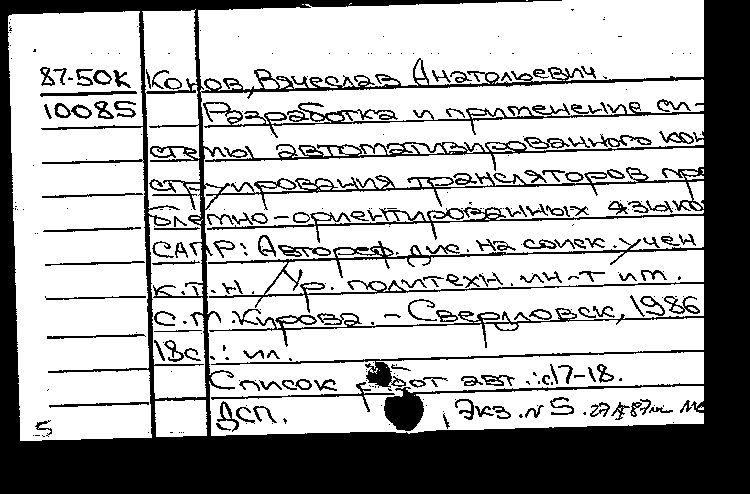 87-50к Конов, Вячеслав Анатольевич.
10085 Разработка и применение си-
стемы автоматизированного кон
струирования трансляторов про
блемно-ориентированных языко
САПР: Автореф. дис. на соиск. учен
к.т.н. / Ур. политехн. ин-т им.
С.М. Кирова. - Свердловск, 1986
18с.: ил.
Список работ авт.: с17-18.
ДСП. Экз. N 5.
5